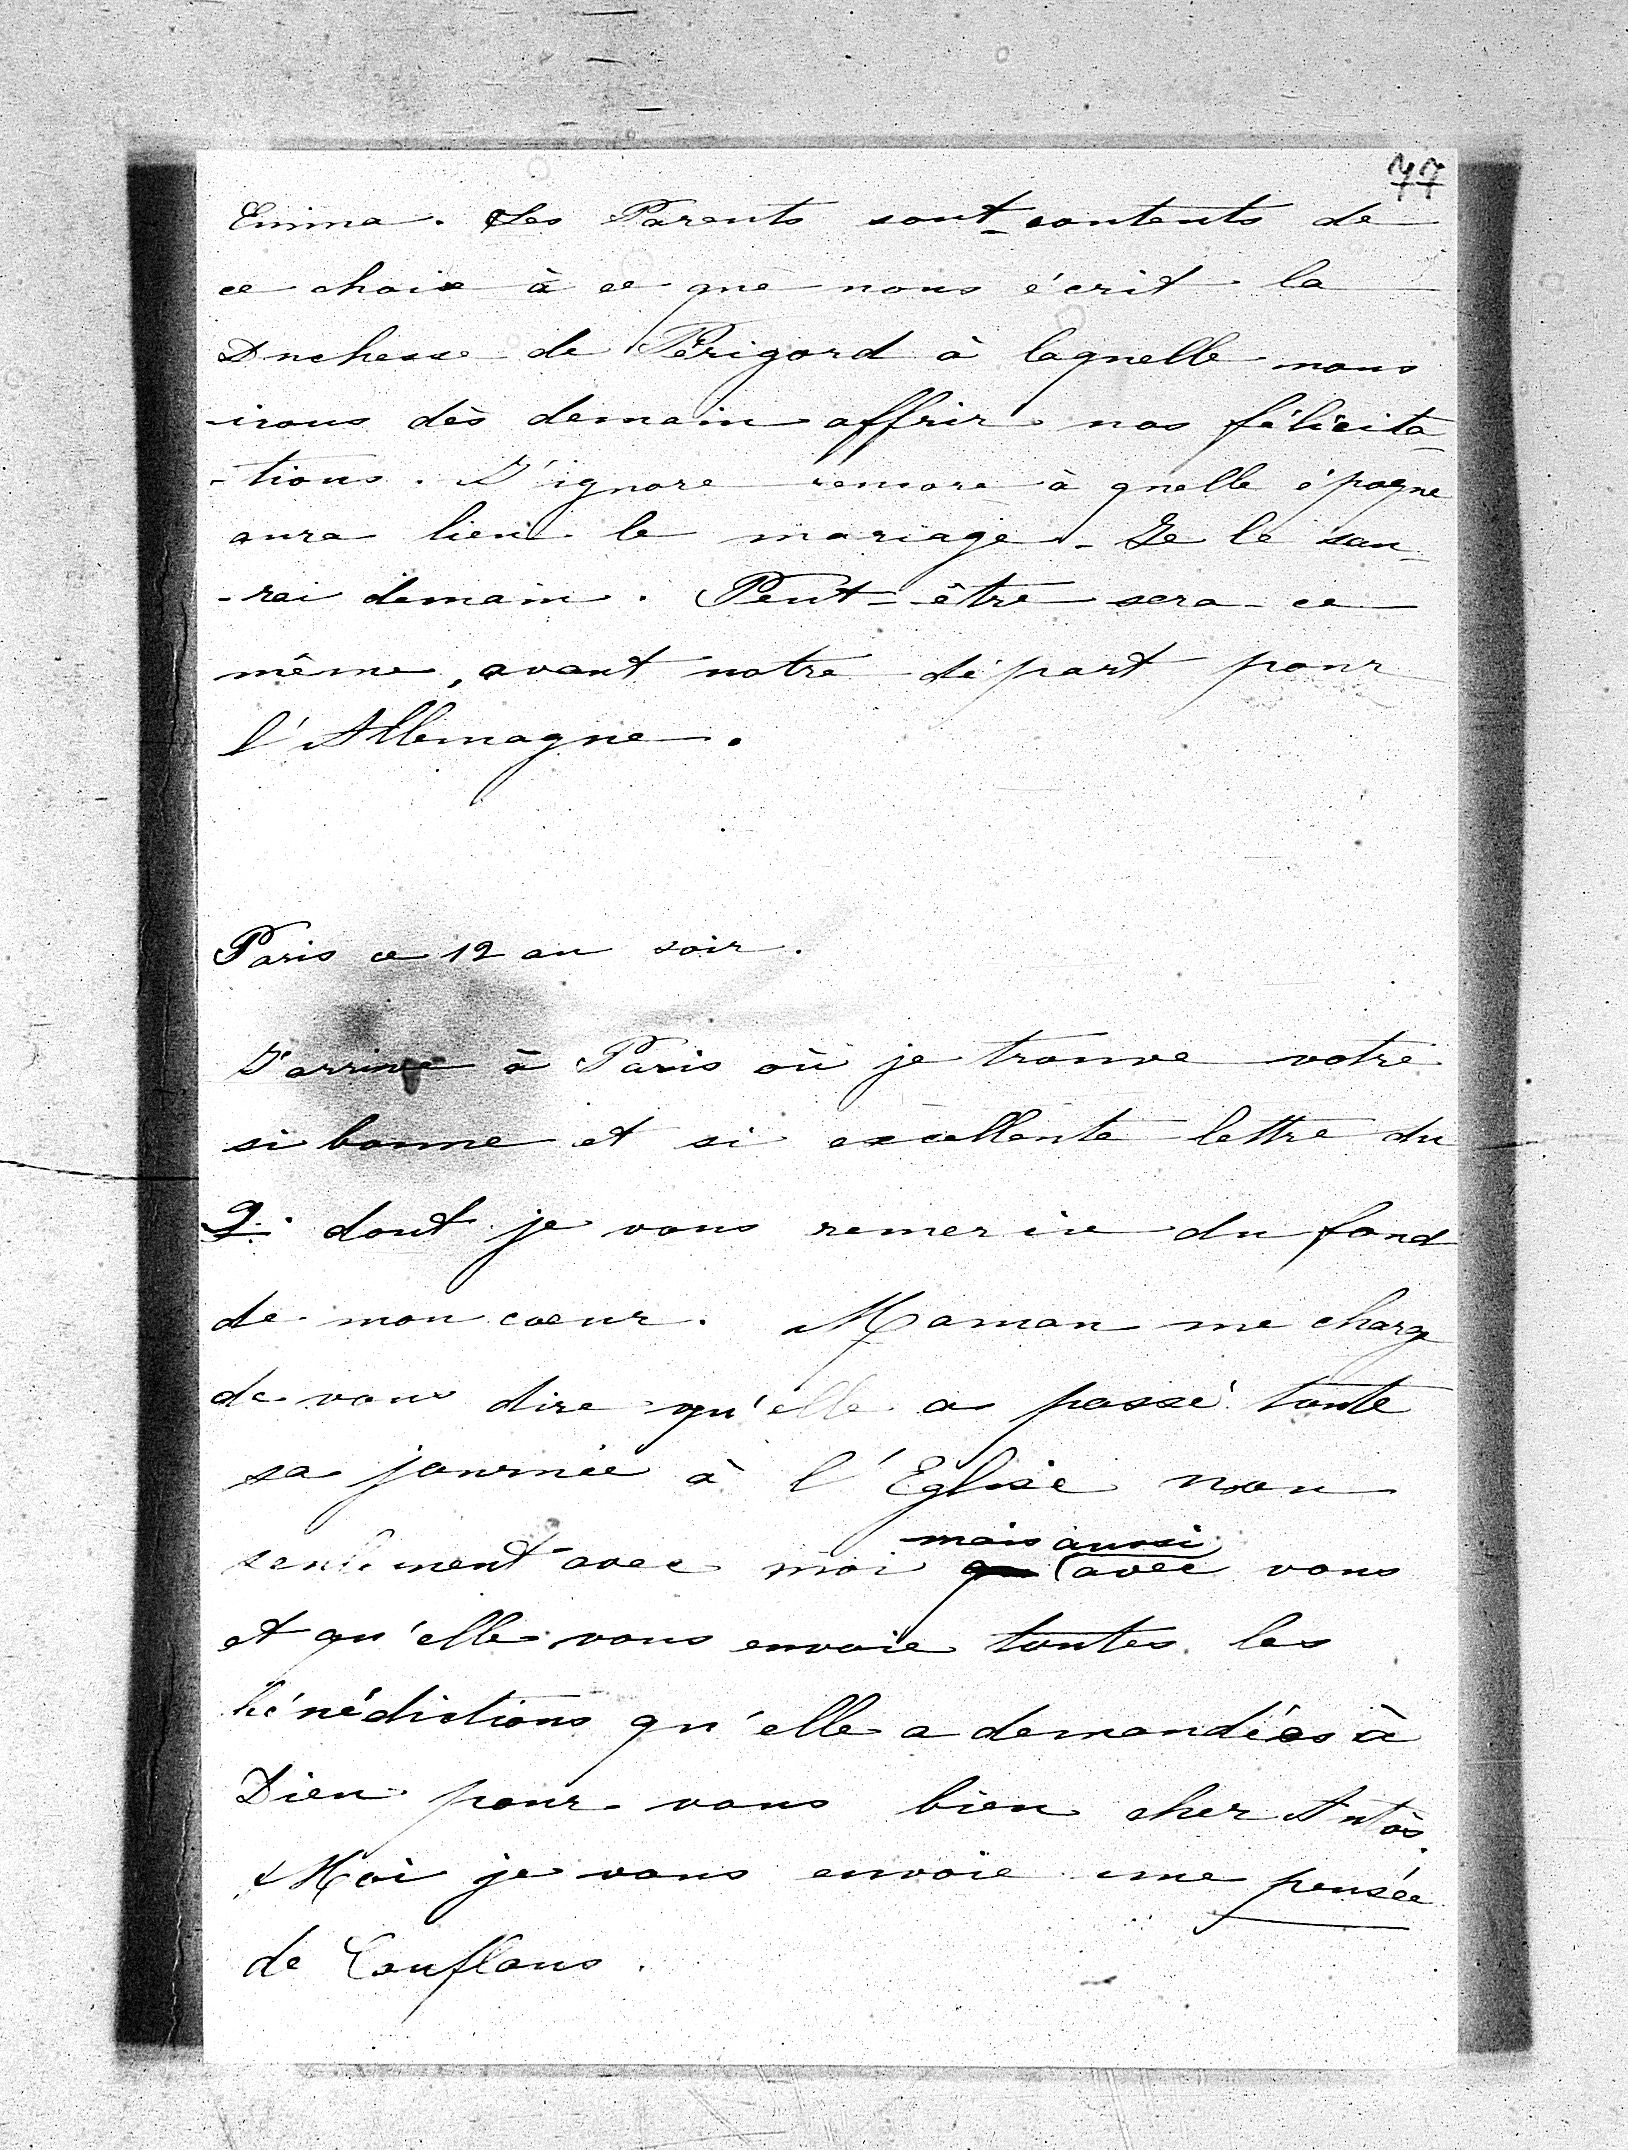 77
Emma. Les Parents sont contents de
ce choix à ce que nous écrit la
Duchesse de Périgord à laquelle nous
irons dès demain offrir nos félicita-
-tions. J'ignore encore à quelle époque
aura lieu le mariage - Je le sau-
-rai demain. Peut-être sera-ce
même, avant notre départ pour
l'Allemagne.
Paris ce 12 au soir.
J'arrive à Paris où je trouve votre
si bonne et si excellente lettre du
9. dont je vous remercie du fond
de mon coeur. Maman me charge
de vous dire qu'elle a passé toute
sa journée à l'Eglise non
mais aussi
seulement avec moi avec vous
et qu'elle vous envoie toutes les
bénédictions qu'elle a demandées à
Dieu pour vous bien cher Antos.
Moi je vous envoie une pensée
de Conflans.